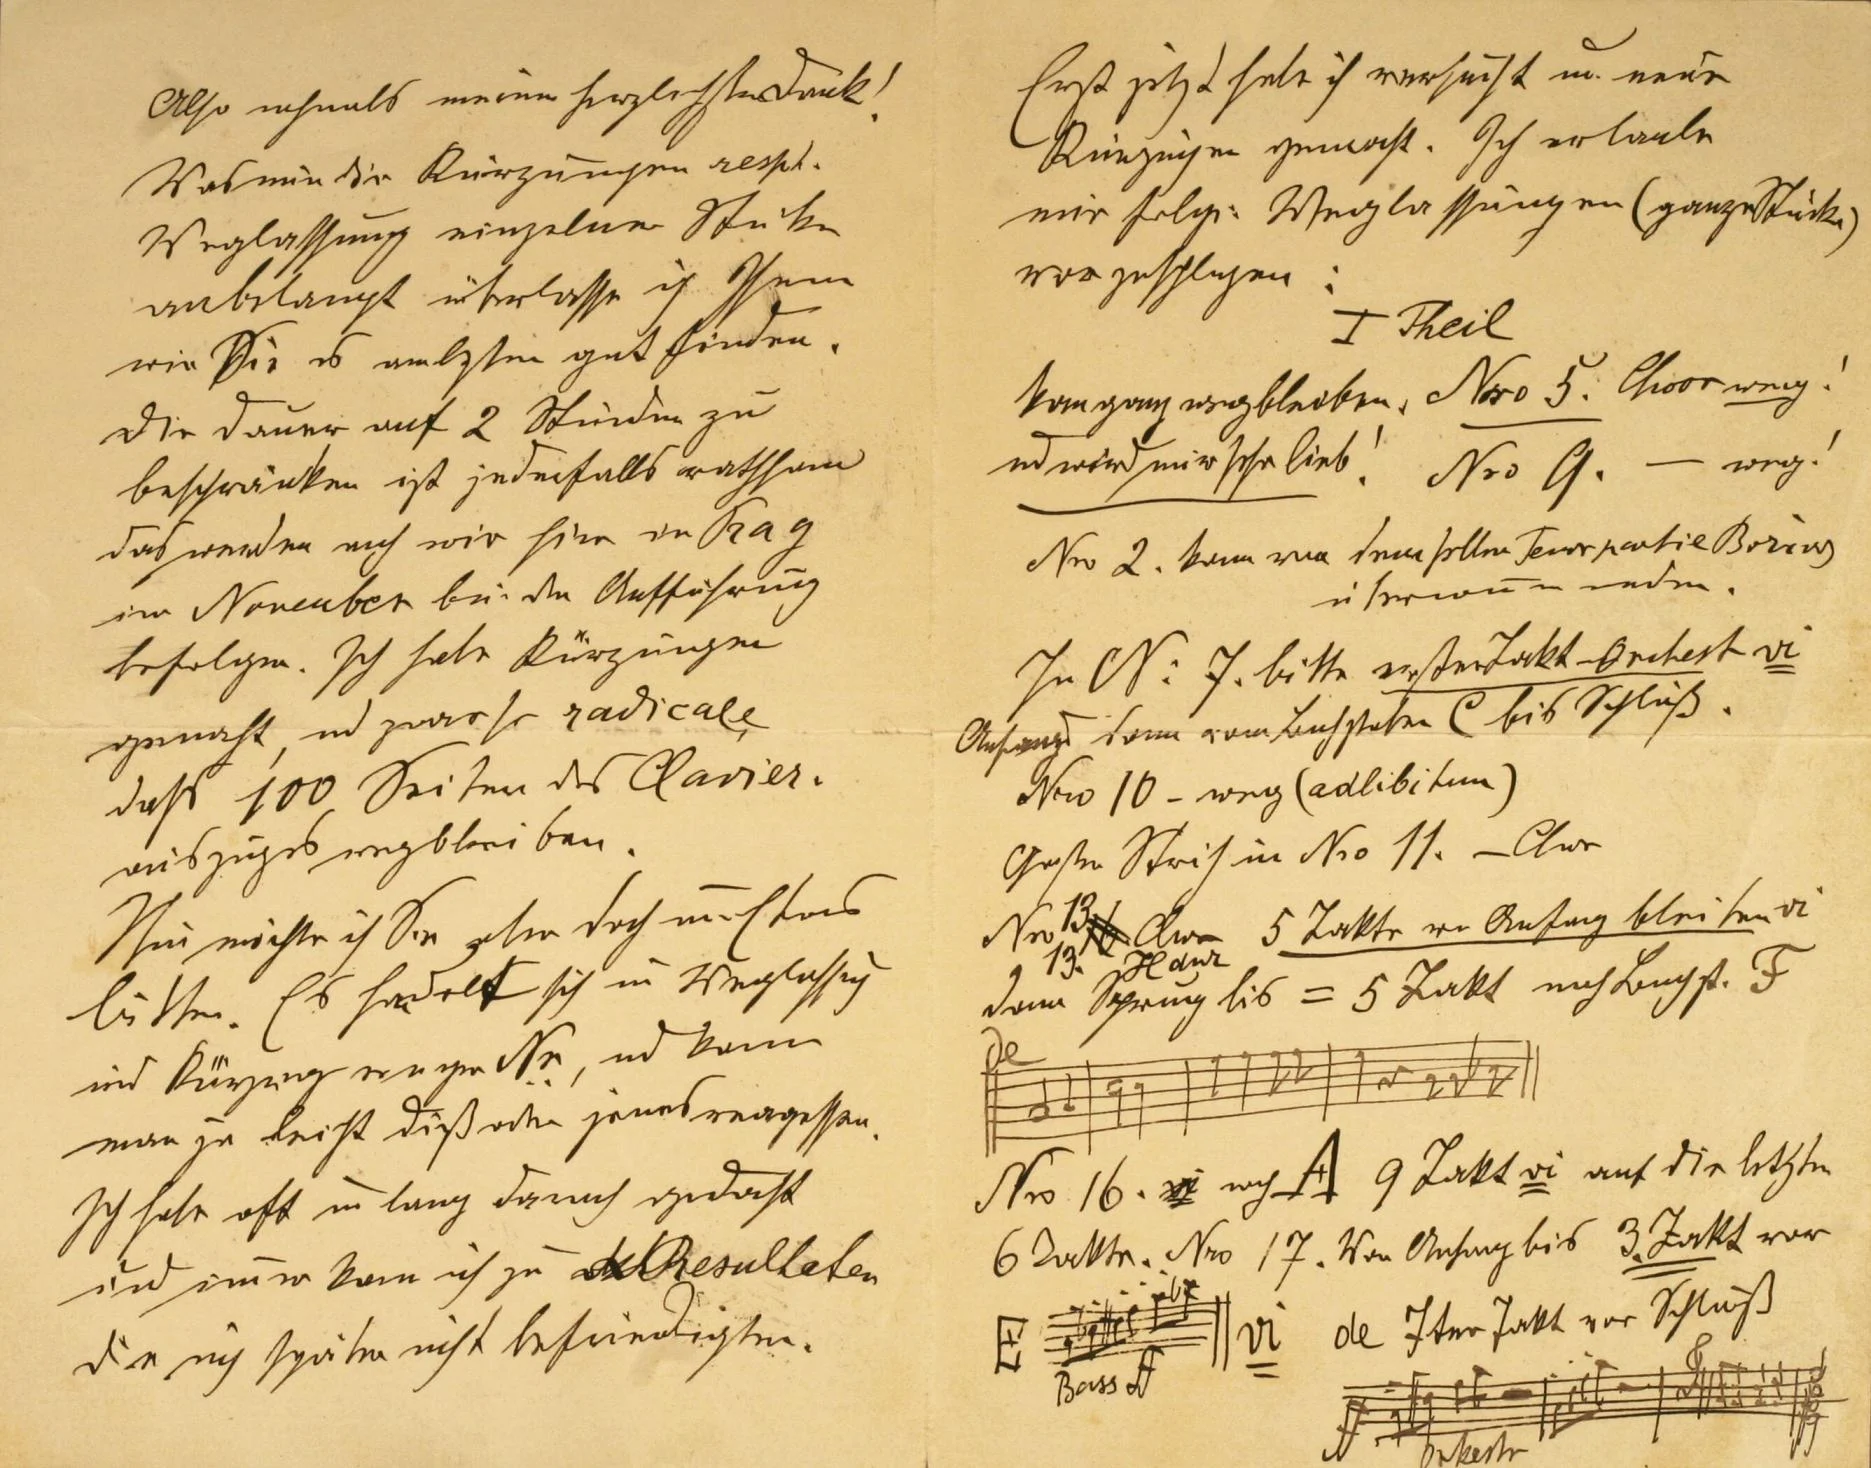 Also nochmals meinen herzlichsten Dank!
Was nun die Kürzungen respt.
Weglassung einzelner Stücke
anbelangt überlasse ich Ihnen
wie Sie es am besten gut finden.
Die Dauer auf 2 Stunden zu
beschränken ist jedenfalls rathsam
das werden auch wir hier in Prag
im November bei der Aufführung
befolgen. Ich habe Kürzungen
gemacht, und zwar so radicale,
dass 100 Seiten des Clavier-
auszuges wegbleiben.
Nun möchte ich Sie aber doch um Etwas
bitten. Es handelt sich um Weglassung
und Kürzung einiger Nr., und kann
man ja leicht dieß oder jenes vergessen.
Ich habe oft und lang darnach gedacht
und immer kam ich zu Resultaten
die mich später nicht befriedigten.
Erst jetzt habe ich versucht u. neue
Kürzungen gemacht. Ich erlaube
mir folg: Weglassungen (ganze Stücke)
vorzuschlagen:
I Theil
kann ganz wegbleiben, Nro 5. Choor weg!
und wird mir sehr lieb! Nro 9. — weg!
Nro 2. kann von demselben Tenorpartie
übernommen werden.
In N: 7. bitte erster Takt Orchest vi
Anfang dann vom Buchstaben C bis Schluß.
Nro 10 - weg (ad libitum)
Großer Strich in Nro 11. — Chor
Nro 13 Chor 5 Takte von Anfang bleiben vi
13. H dur
dann Sprung bis = 5 Takt nach Buchst. F
de
Nro 16. vi nach A 9 Takt vi auf die letzten
6 Takte. Nro 17. Von Anfang bis 3. Takt vor
E vi de 7ter Takt vor Schluß
Bass ff
ff
Orkestr